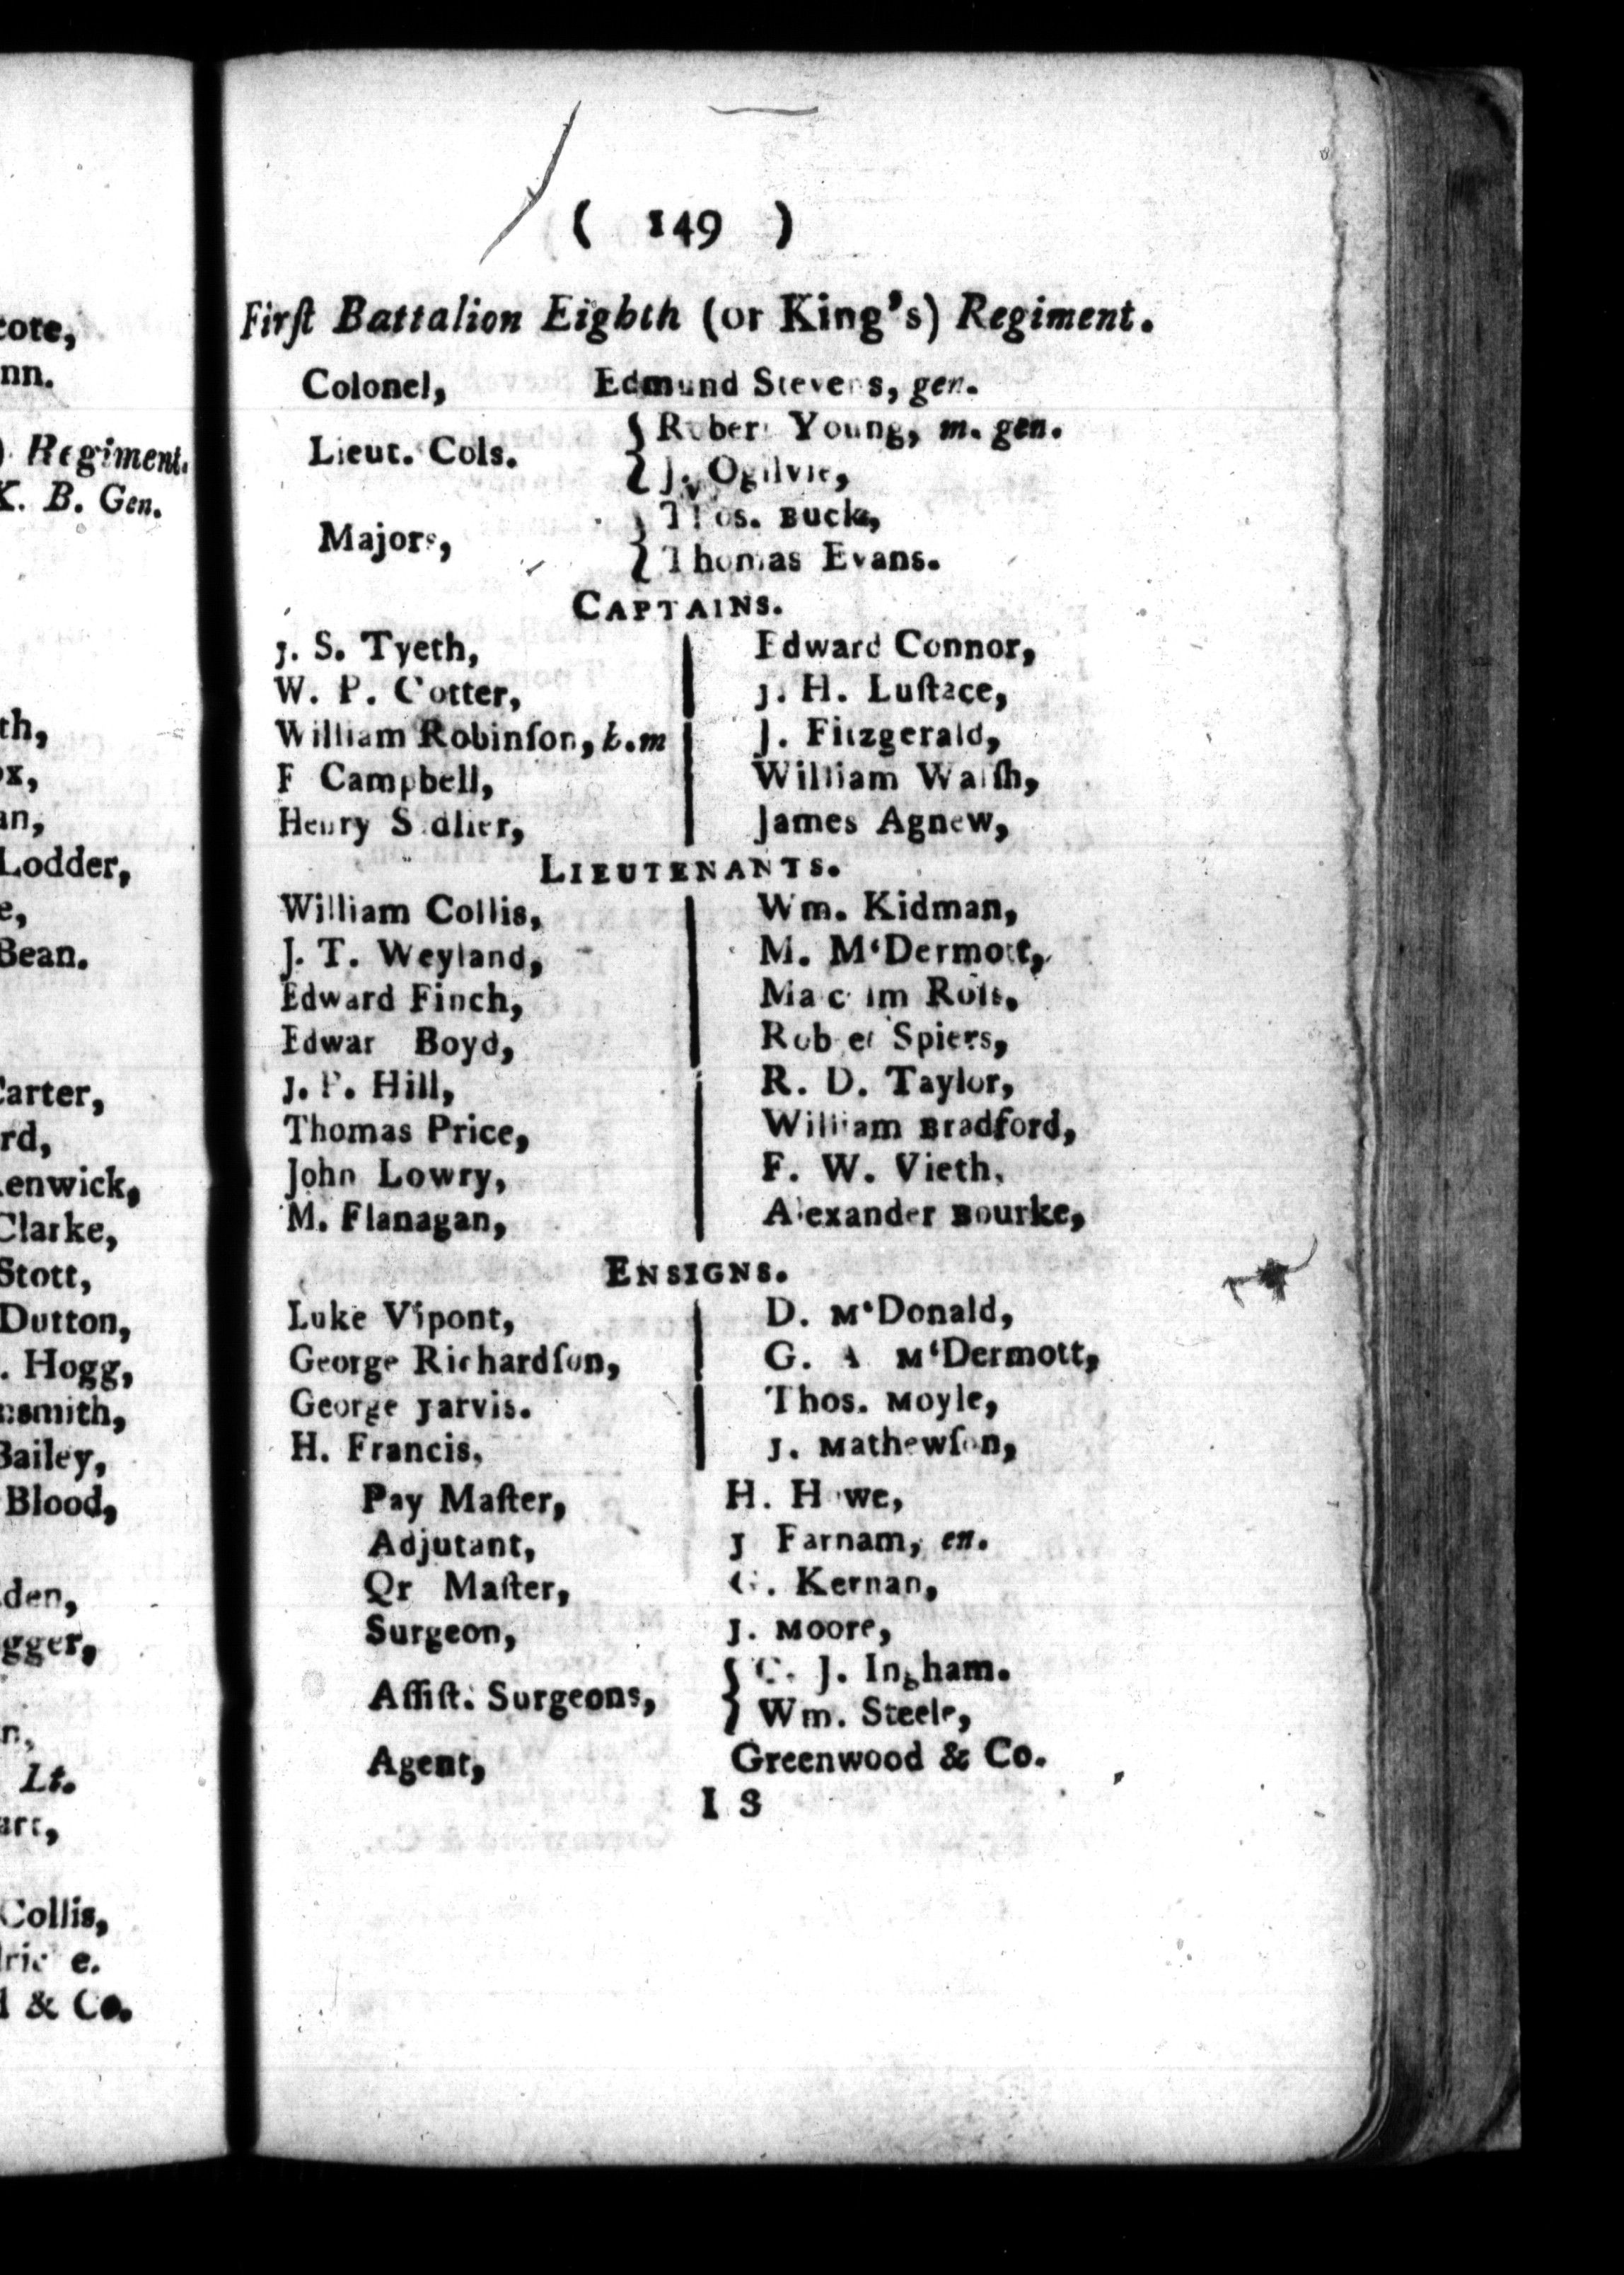 cote,
nn.
) Regiment.
K. B. Gen.
th,
ox,
an,
Lodder,
e,
Bean.
Carter,
rd,
enwick,
Clarke,
Stott,
Dutton,
. Hogg,
nsmith,
Bailey,
Blood,
den,
gger,
n,
Lt.
art,
Collis,
e.
& Co.
( 149 )
Firſt Battalion Eighth (or King's) Regiment.
Colonel, Edmund Stevens, gen.
Lieut. Cols. { Rober Young, m. gen.
{ J. Ogilvie,
Majors, { Thos. Buck,
{ Thomas Evans.
CAPTAINS.
J. S. Tyeth, | Edward Connor,
W. P. Cotter, | J. H. Luſtace,
William Robinſon, b.m | J. Fitzgerald,
F Campbell, | William Walſh,
Henry S dlier, | James Agnew,
LIEUTENANTS.
William Collis, | Wm. Kidman,
J. T. Weyland, | M. M‘Dermott,
Edward Finch, | Malc lm Roſs,
Edwar Boyd, | Rober Spiers,
J. P. Hill, | R. D. Taylor,
Thomas Price, | William Bradford,
John Lowry, | F. W. Vieth,
M. Flanagan, | Alexander Bourke,
ENSIGNS.
Luke Vipont, | D. M‘Donald,
George Richardſon, | G. A M‘Dermott,
George Jarvis. | Thos. Moyle,
H. Francis, | J. Mathewſon,
Pay Maſter, H. H we,
Adjutant, J Farnam, en.
Qr Maſter, G. Kernan,
Surgeon, J. Moore,
Aſſiſt. Surgeons, { C. J. Ingham.
{ Wm. Steele,
Agent, Greenwood & Co.
I 3